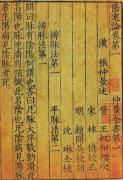 傷寒論卷第一　仲景全書第一
漢　張仲景述　晉　王叔和撰次
宋　林　億校正
明　趙開美校刻
沈　琳仝校
辨脉法第一　平脉法第二
辨脉法第一
問曰脉有陰陽何謂也答曰凡脉大浮數動滑此
名陽也脉沉濇弱弦微此名陰也凡陰病見陽脉
者生陽病見陰脉者死